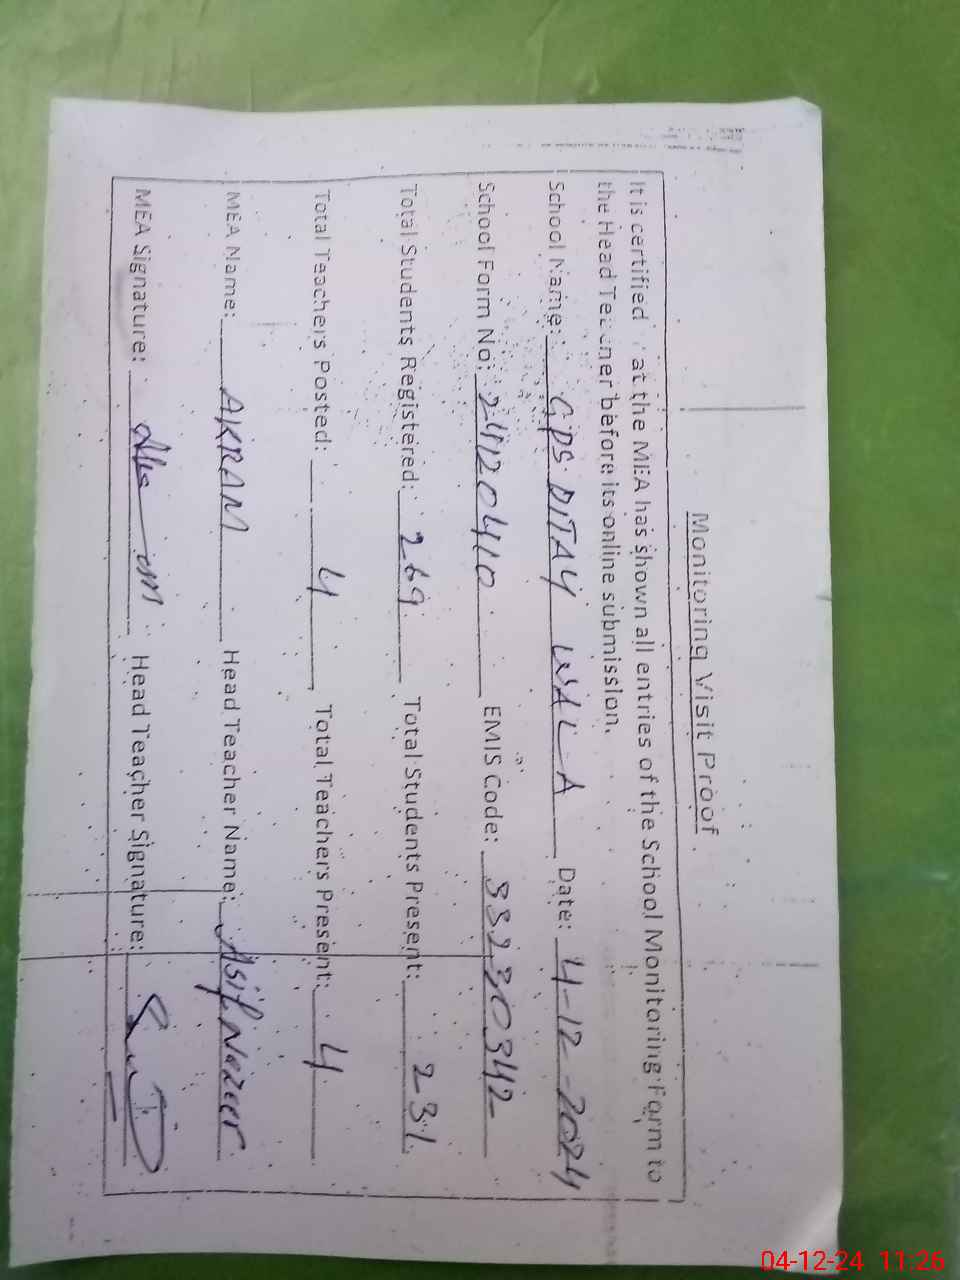 Monitoring Visit Proof
It is certified at the MEA has shown all entries of the School Monitoring Form to
the Head Teacher before its online submission.
School Name: GPS DITAY WALA Date: 4-12-2024
School Form No: 24120410 EMIS Code: 33230342
Total Students Registered: 269 Total Students Present: 231
Total Teachers Posted: 4 Total Teachers Present: 4
MEA Name: AKRAM Head Teacher Name: Asif Nazeer
MEA Signature: Head Teacher Signature:
04-12-24 11:26